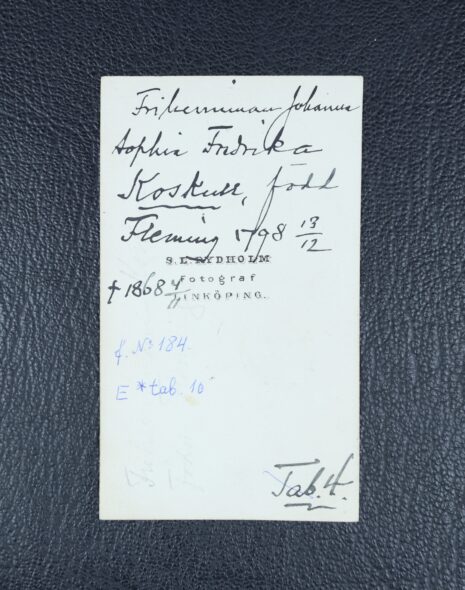 Friherrinnan Johanna
Sophia Fredrika
Koskull, född
Fleming 1798 13/12
S. L. RYDHOLM
Fotograf
LINKÖPING.
† 1868 4/11
f. No 184.
E * tab. 10
Tab. 4.